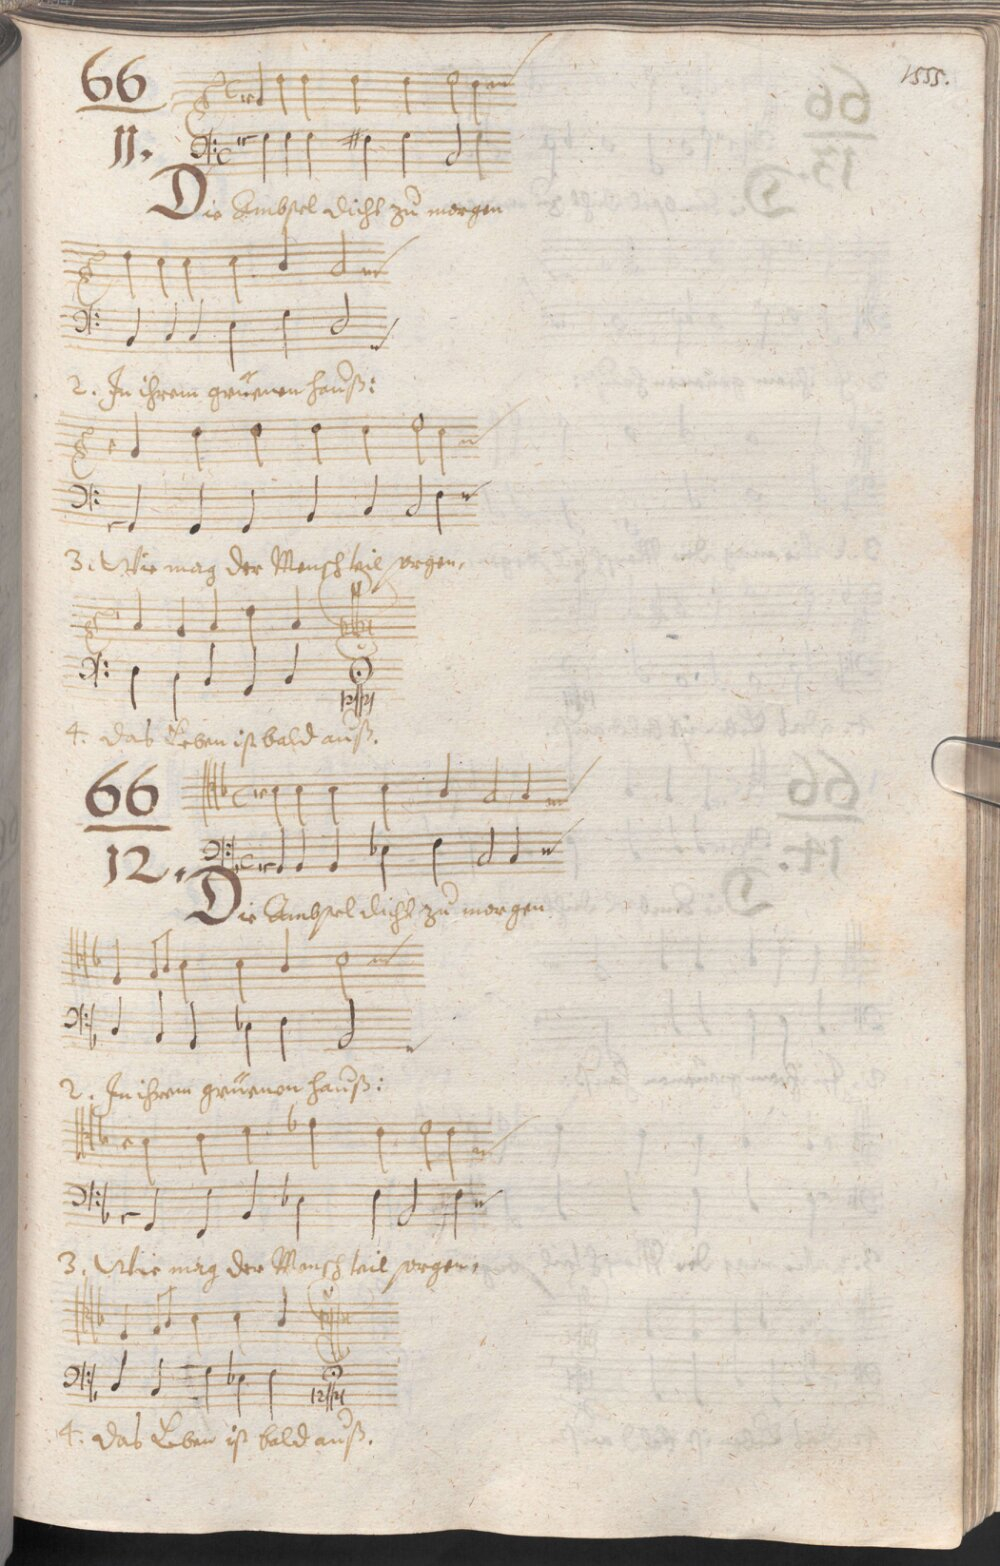 1555.
66
11.
Die Ambsel dicht zu morgen
2. In ihrem gruenen hauß:
3. Wie mag der Mensch seil sorgen,
4. das Leben ist bald auß.
66
12.
Die Ambsel dicht zu morgen
2. In ihrem gruenen hauß:
3. Wie mag der Mensch seil sorgen,
4. das Leben ist bald auß.